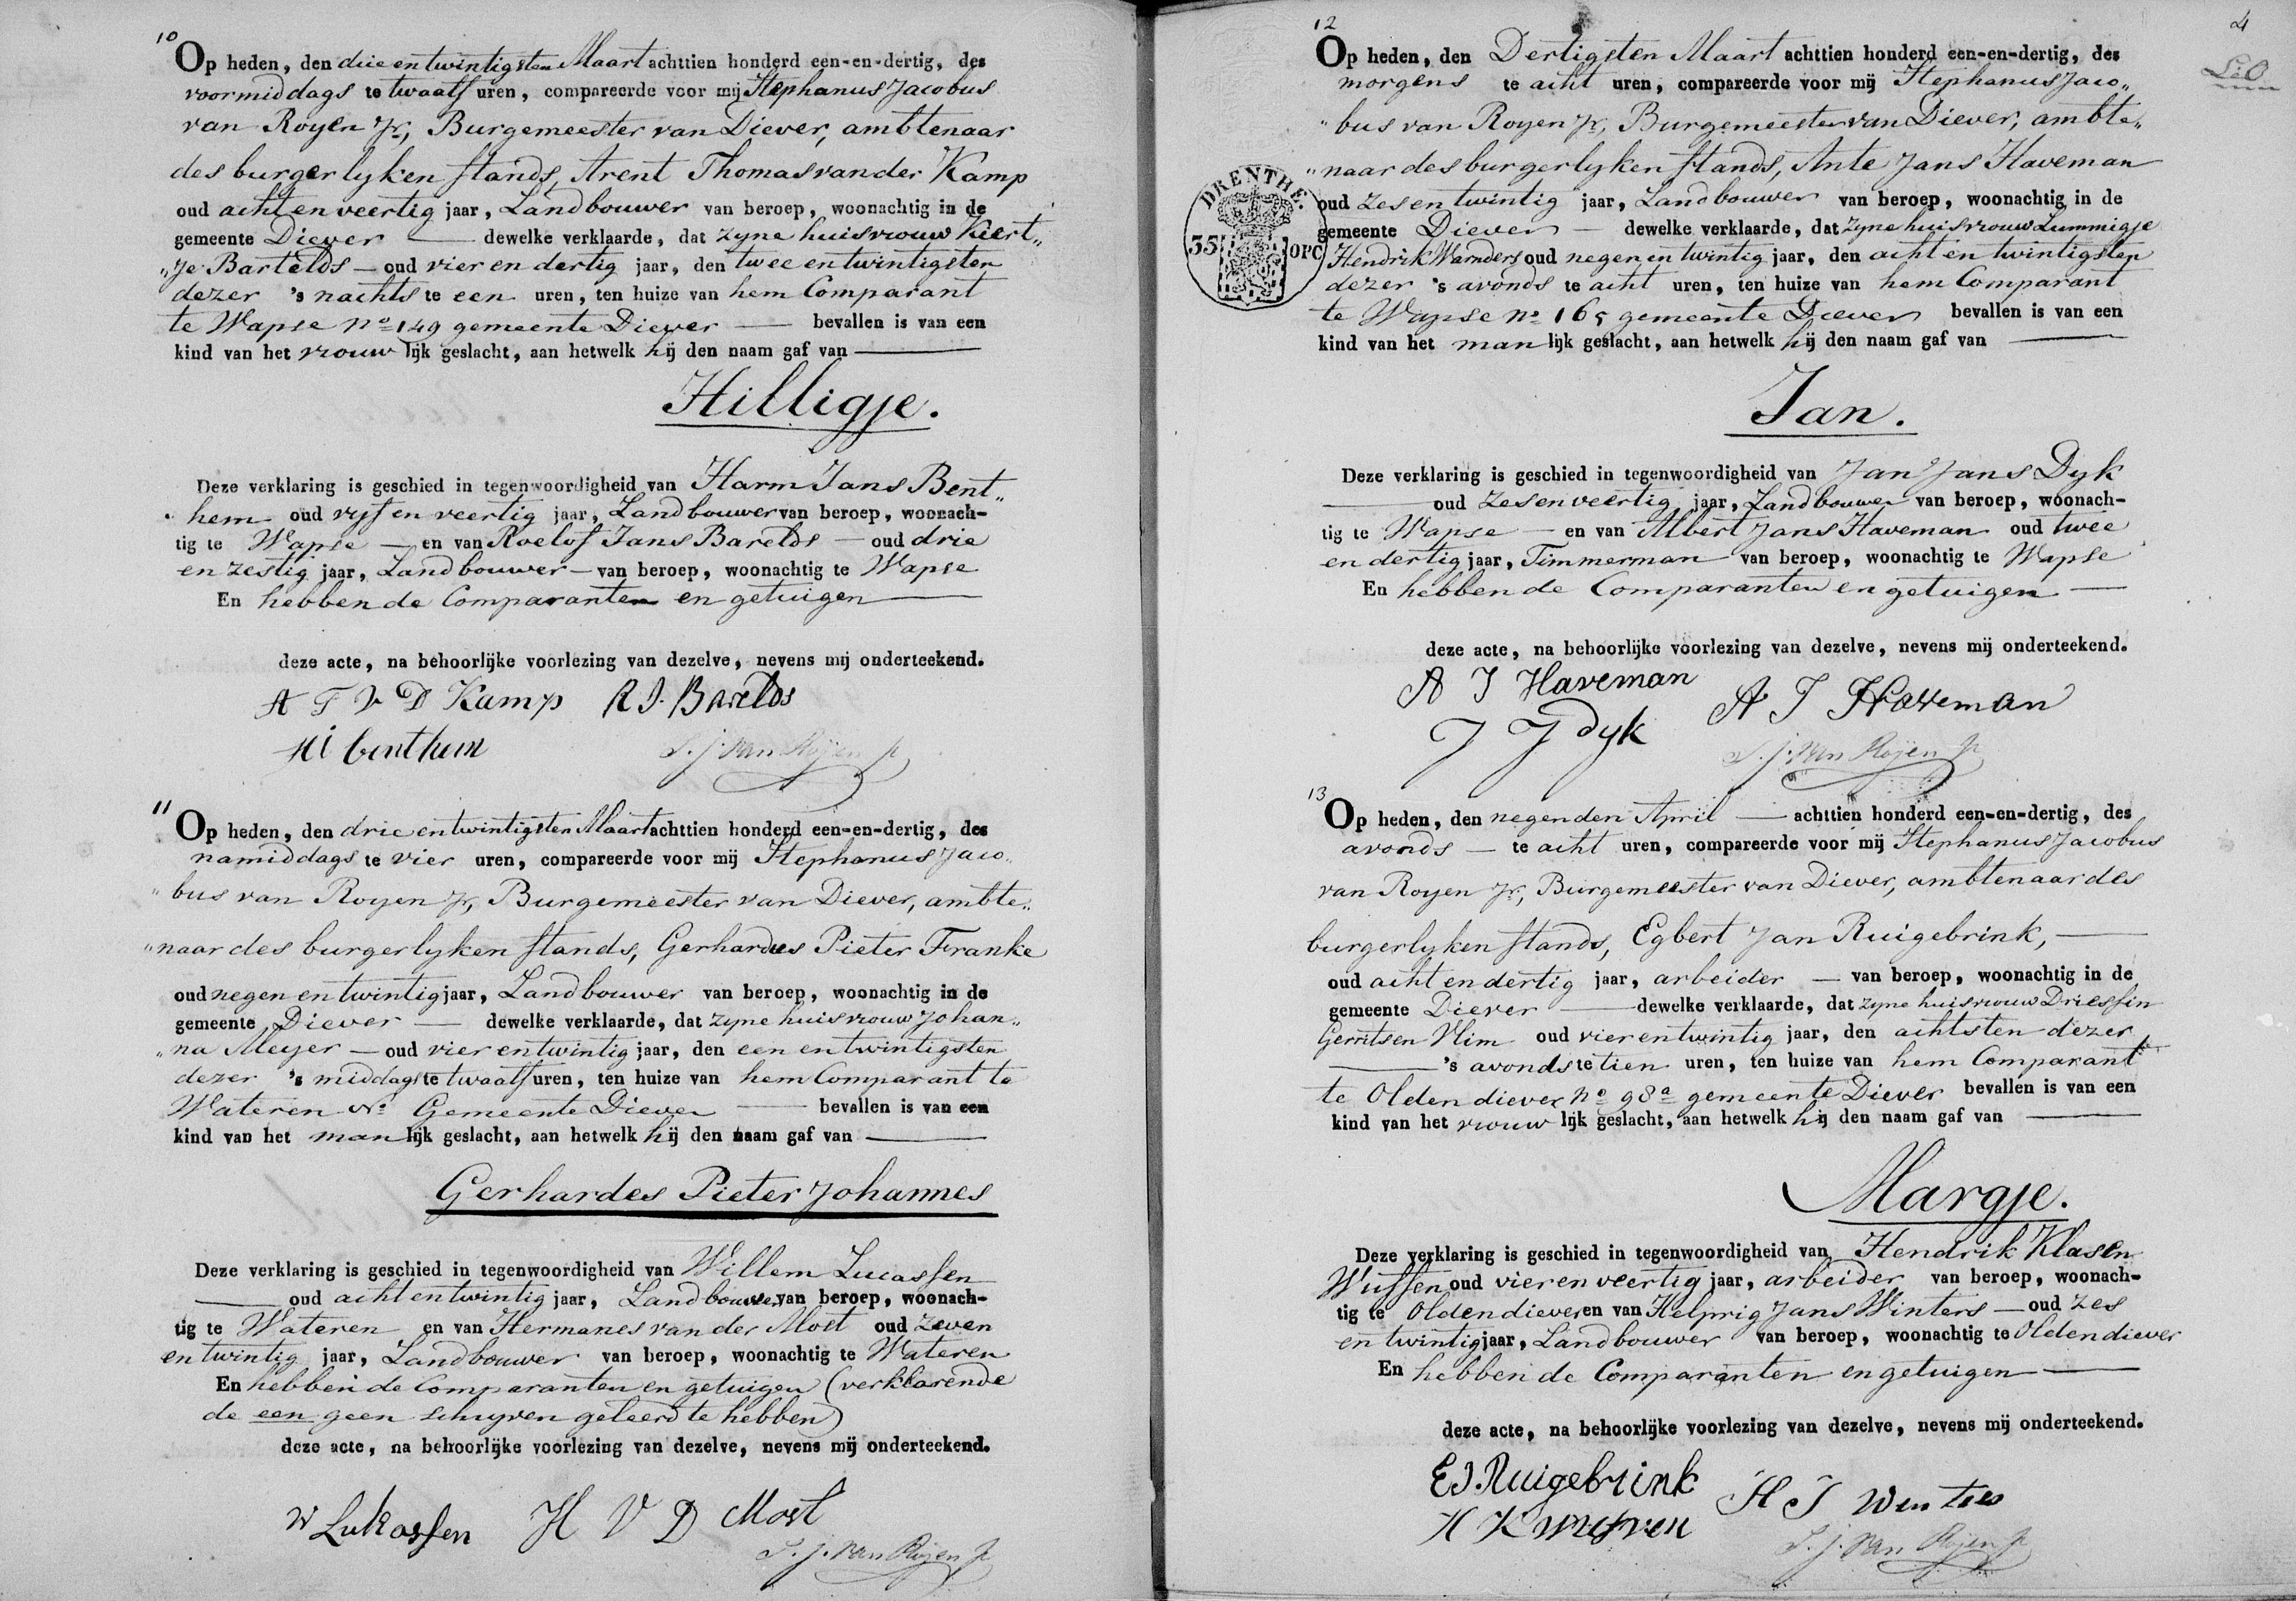 10
Op heden, den drie en twintigsten Maart achttien honderd een-en-dertig, des
voormiddags te twaalf uren, compareerde voor mij Stephanus Jacobus
van Royen Jr, Burgemeester van Diever, ambtenaar
des burgerlyken stands, Arent Thomas van der Kamp
oud acht en veertig jaar, Landbouwer van beroep, woonachtig in de
gemeente Diever — dewelke verklaarde, dat zyne huisvrouw Kiert„
„je Bartelds — oud vier en dertig jaar, den twee en twintigsten
dezer 's nachts te een uren, ten huize van hem Comparant
te Wapse No 149 gemeente Diever — bevallen is van een
kind van het vrouwlijk geslacht, aan hetwelk hij den naam gaf van —
Hilligje.
Deze verklaring is geschied in tegenwoordigheid van Harm Jans Bent„
hem oud vyf en veertig jaar, Landbouwer van beroep, woonach-
tig te Wapse — en van Roelof Jans Barelds — oud drie
en zestig jaar, Landbouwer — van beroep, woonachtig te Wapse
En hebben de Comparanten en getuigen —
deze acte, na behoorlijke voorlezing van dezelve, nevens mij onderteekend.
A T V D Kamp R J. Barelds
HJ benthem S. J. van Royen Jr
11
Op heden, den drie en twintigsten Maart achttien honderd een-en-dertig, des
namiddags te vier uren, compareerde voor mij Stephanus Jaco„
„bus van Royen Jr, Burgemeester van Diever, ambte„
„naar des burgerlyken stands, Gerhardus Pieter Franke
oud negen en twintig jaar, Landbouwer van beroep, woonachtig in de
gemeente Diever — dewelke verklaarde, dat zyne huisvrouw Johan„
„na Meyer — oud vier en twintig jaar, den een en twintigsten
dezer 's middags te twaalf uren, ten huize van hem Comparant te
Wateren No Gemeente Diever — bevallen is van een
kind van het manlijk geslacht, aan hetwelk hij den naam gaf van —
Gerhardes Pieter Johannes
Deze verklaring is geschied in tegenwoordigheid van Willem Lucassen
— oud acht en twintig jaar, Landbouwer van beroep, woonach-
tig te Wateren en van Hermanes van der Most oud zeven
en twintig jaar, Landbouwer van beroep, woonachtig te Wateren
En hebben de Comparanten en getuigen (verklarende
de een geen schryven geleerd te hebben)
deze acte, na behoorlijke voorlezing van dezelve, nevens mij onderteekend.
W Lukassen H V D Most
S. J. van Royen Jr
4
12
Op heden, den Dertigsten Maart achttien honderd een-en-dertig, des
morgens te acht uren, compareerde voor mij Stephanus Jaco„
„bus van Royen Jr, Burgemeester van Diever, ambte„
„naar des burgerlyken stands, Ante Jans Haveman
DRENTHE.
35 OPC
oud zes en twintig jaar, Landbouwer van beroep, woonachtig in de
gemeente Diever — dewelke verklaarde, dat zyne huisvrouw Lummigje
Hendrik Warnders oud negen en twintig jaar, den acht en twintigsten
dezer 's avonds te acht uren, ten huize van hem Comparant
te Wapse No 165 gemeente Diever bevallen is van een
kind van het manlijk geslacht, aan hetwelk hij den naam gaf van —
Jan.
Deze verklaring is geschied in tegenwoordigheid van Jan Jans Dyk
— oud zes en veertig jaar, Landbouwer van beroep, woonach-
tig te Wapse — en van Albert Jans Haveman oud twee
en dertig jaar, Timmerman van beroep, woonachtig te Wapse
En hebben de Comparanten en getuigen —
deze acte, na behoorlijke voorlezing van dezelve, nevens mij onderteekend.
A J Haveman A J Haveman
J J dyk S. J. van Royen Jr
13
Op heden, den negenden April — achttien honderd een-en-dertig, des
avonds — te acht uren, compareerde voor mij Stephanus Jacobus
van Royen Jr, Burgemeester van Diever, ambtenaar des
burgerlyken stands, Egbert Jan Ruigebrink, —
oud acht en dertig jaar, arbeider — van beroep, woonachtig in de
gemeente Diever — dewelke verklaarde, dat zyne huisvrouw Driessin
Gerritsen Vlim oud vier en twintig jaar, den achtsten dezer
— 's avonds te tien uren, ten huize van hem Comparant
te Oldendiever No 98a gemeente Diever bevallen is van een
kind van het vrouwlijk geslacht, aan hetwelk hij den naam gaf van —
Margje.
Deze verklaring is geschied in tegenwoordigheid van Hendrik Klasen
Wuffen oud vier en veertig jaar, arbeider van beroep, woonach-
tig te Oldendiever en van Helprig Jans Winters — oud zes
en twintig jaar, Landbouwer van beroep, woonachtig te Oldendiever
En hebben de Comparanten en getuigen —
deze acte, na behoorlijke voorlezing van dezelve, nevens mij onderteekend.
E J. Ruigebrink H J Winters
H K S. J. van Royen Jr